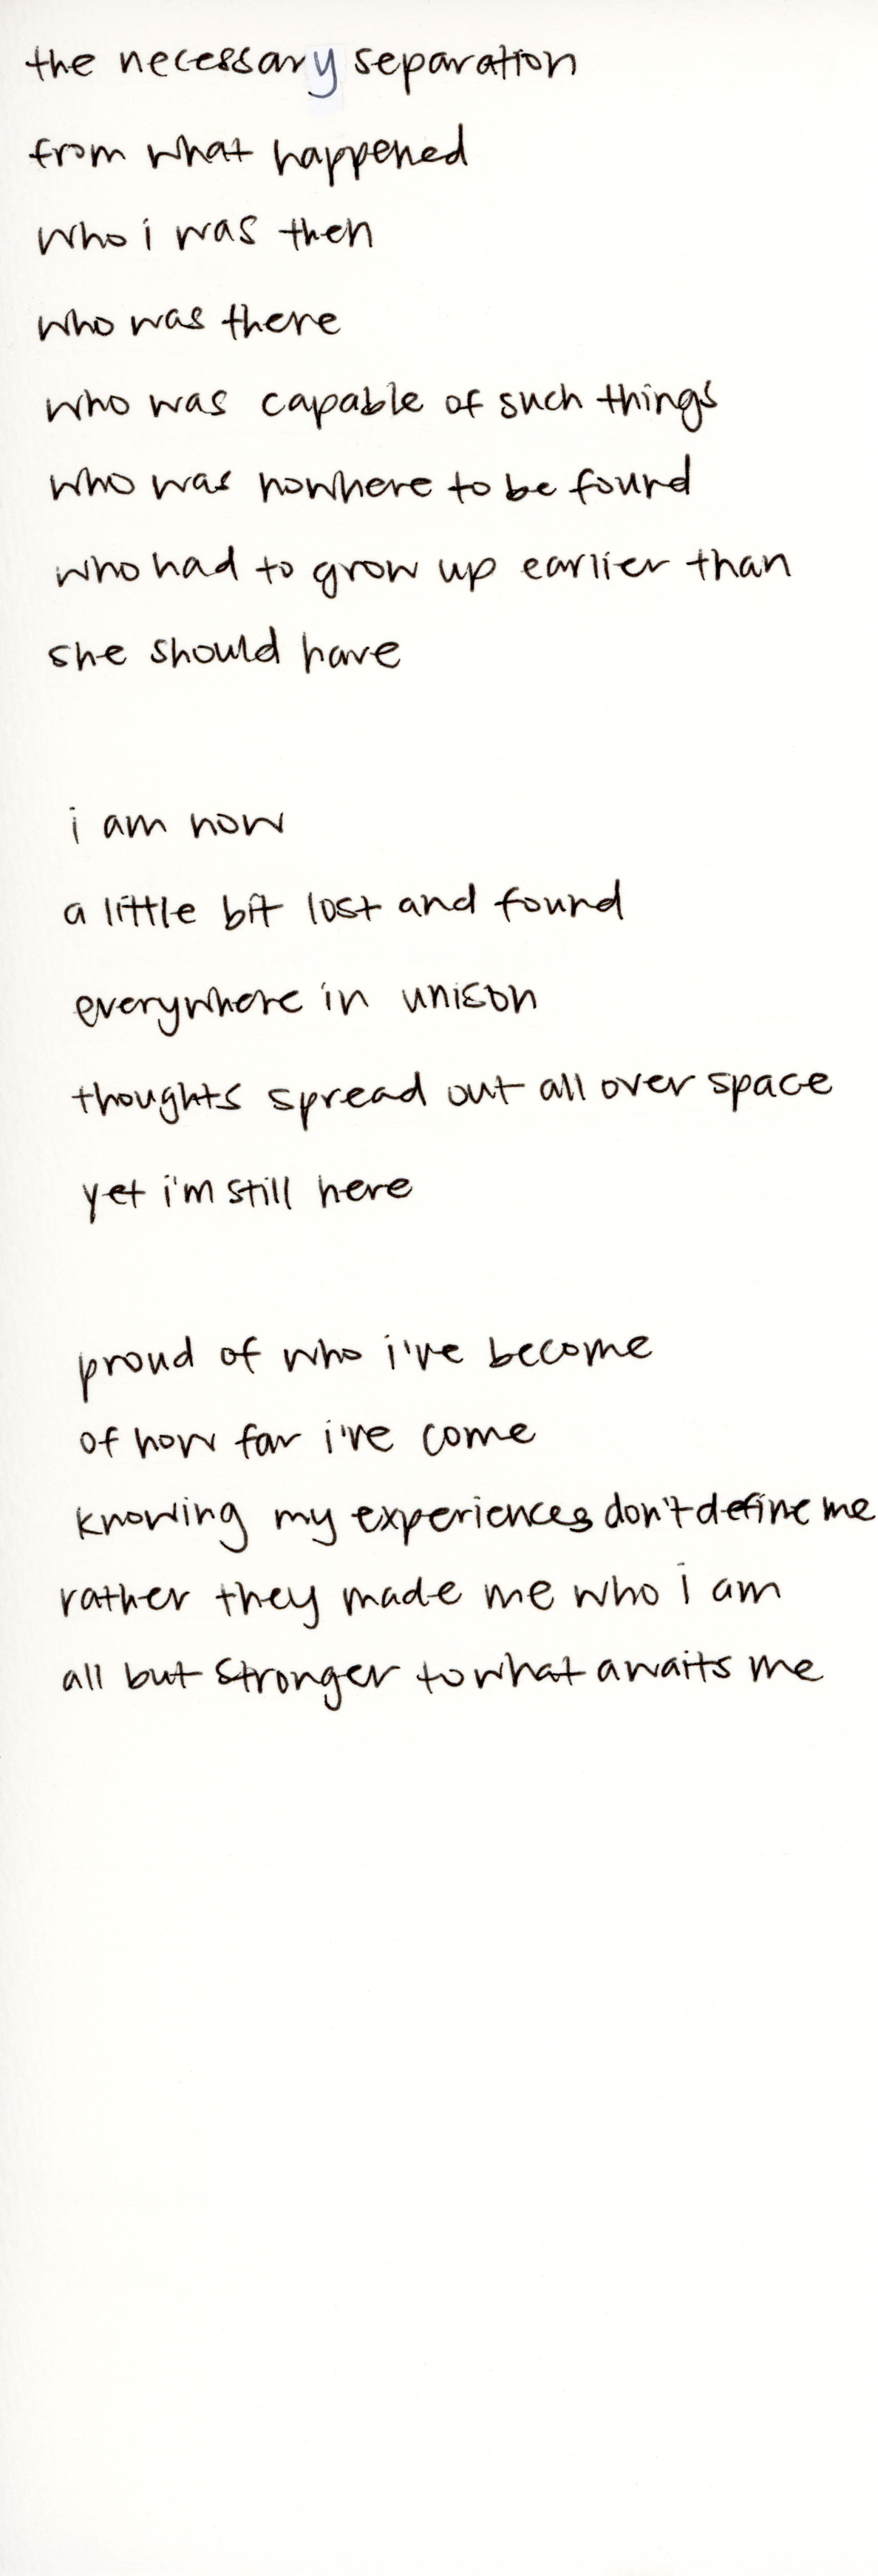 the necessary separation
from what happened
who i was then
who was there
who was capable of such things
who was nowhere to be found
who had to grow up earlier than
she should have
i am now
a little bit lost and found
everywhere in unison
thoughts spread out all over space
yet i'm still here
proud of who i've become
of how far i've come
knowing my experiences don't define me
rather they made me who i am
all but stronger to what awaits me